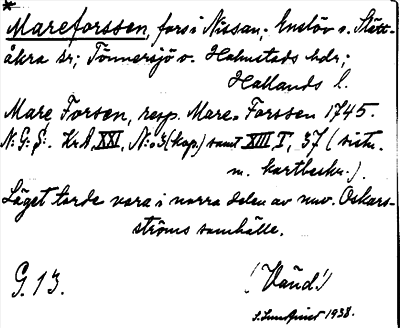 *
Mareforssen, fors i Nissan; Enslöv o. Slätt-
åkra sr; Tönnersjö o. Halmstads hdr;
Hallands l.
Mare Forsen, resp. Mare-Forssen 1745.
N: G: S: Kr A, XXI, N:o 3 (kop.) samt XIII, I, 37 (sistn.
m. kartbeskr.).
Läget torde vara i norra delen av nuv. Oskars-
ströms samhälle.
G. 13.
(Vänd!)
S. Lundquist 1938.